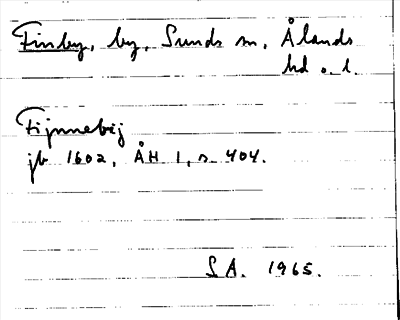 Finby, by, Sunds sn, Ålands
hd o. l.
Fijnnebÿ
jb 1602, ÅH 1, s. 404.
S A. 1965.